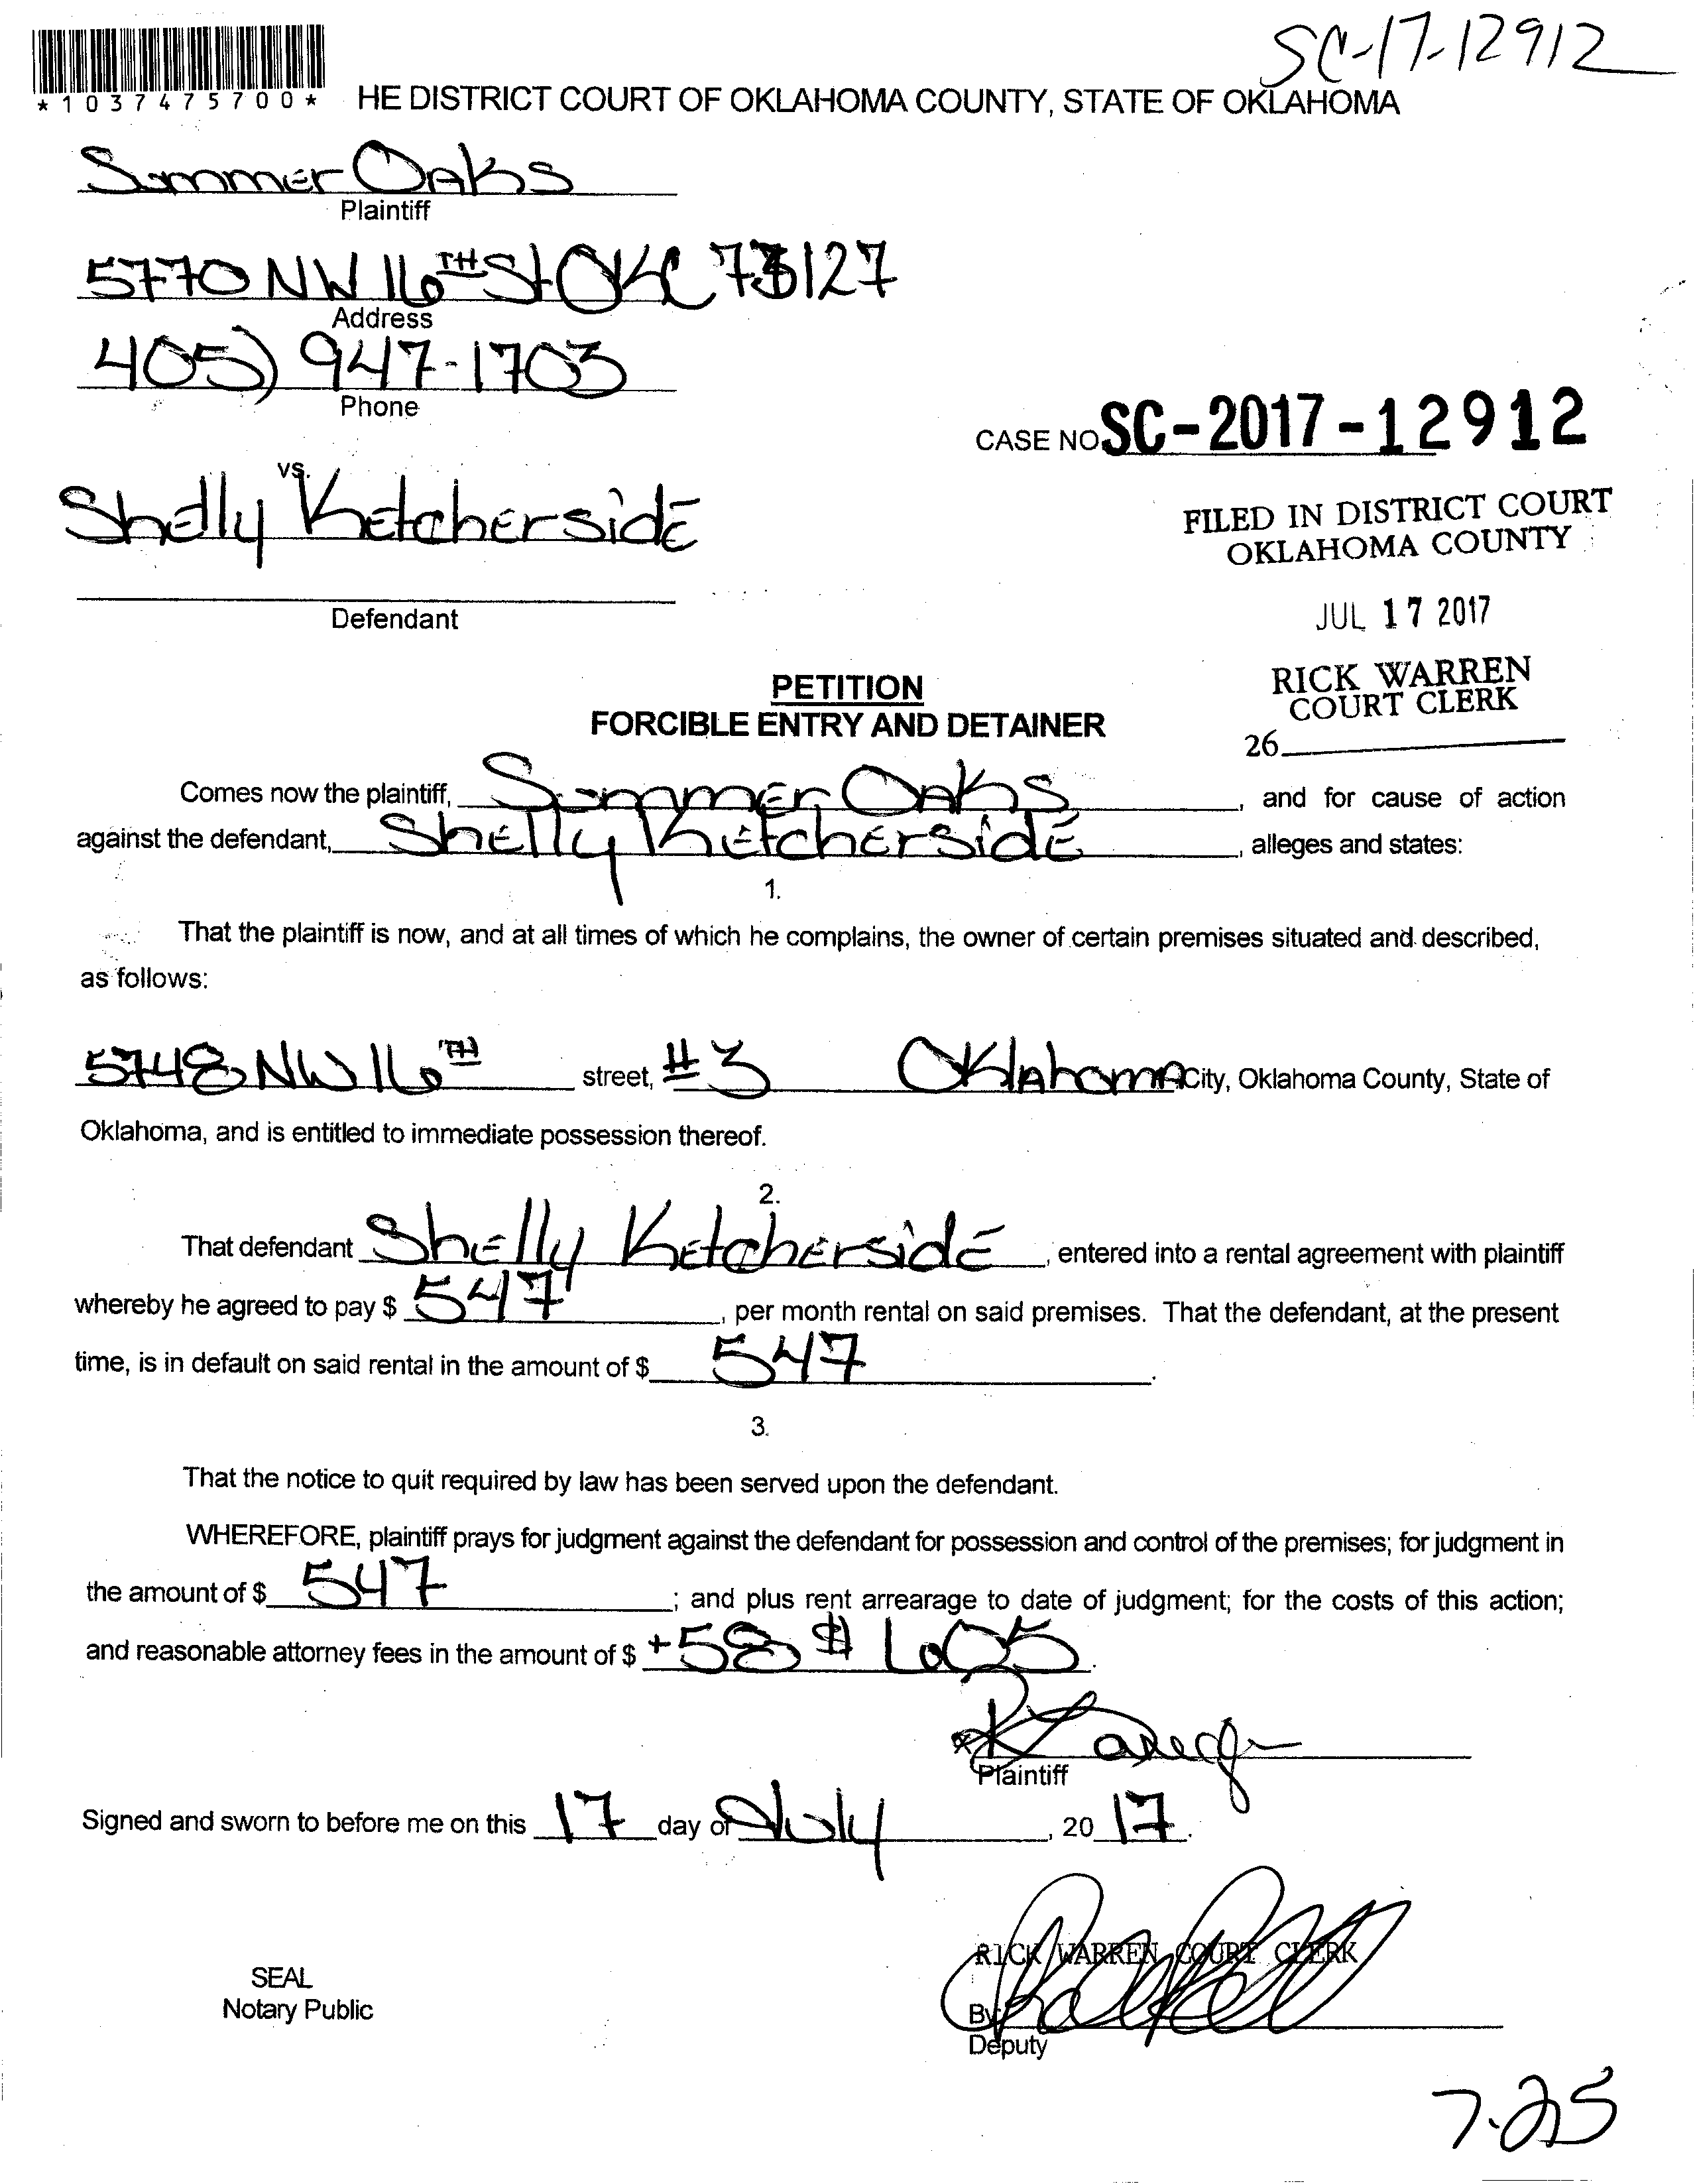 SC-17-12912
*1037475700*
HE DISTRICT COURT OF OKLAHOMA COUNTY, STATE OF OKLAHOMA
Summer Oaks
Plaintiff
5770 NW 16TH St OKC 73127
Address
405) 947-1703
Phone
CASE NO. SC-2017-12912
vs.
Shelly Ketcherside
FILED IN DISTRICT COURT
OKLAHOMA COUNTY
Defendant
JUL 17 2017
RICK WARREN
COURT CLERK
26
PETITION
FORCIBLE ENTRY AND DETAINER
Comes now the plaintiff, Summer Oaks, and for cause of action
against the defendant, Shelly Ketcherside, alleges and states:
1.
That the plaintiff is now, and at all times of which he complains, the owner of certain premises situated and described,
as follows:
5748 NW 16TH street, #3 Oklahoma City, Oklahoma County, State of
Oklahoma, and is entitled to immediate possession thereof.
2.
That defendant Shelly Ketcherside, entered into a rental agreement with plaintiff
whereby he agreed to pay $ 547, per month rental on said premises. That the defendant, at the present
time, is in default on said rental in the amount of $ 547.
3.
That the notice to quit required by law has been served upon the defendant.
WHEREFORE, plaintiff prays for judgment against the defendant for possession and control of the premises; for judgment in
the amount of $ 547; and plus rent arrearage to date of judgment; for the costs of this action;
and reasonable attorney fees in the amount of $ +58 $ 605.
Plaintiff
Signed and sworn to before me on this 17 day of July, 20 17.
RICK WARREN COURT CLERK
SEAL
Notary Public
By
Deputy
7-25